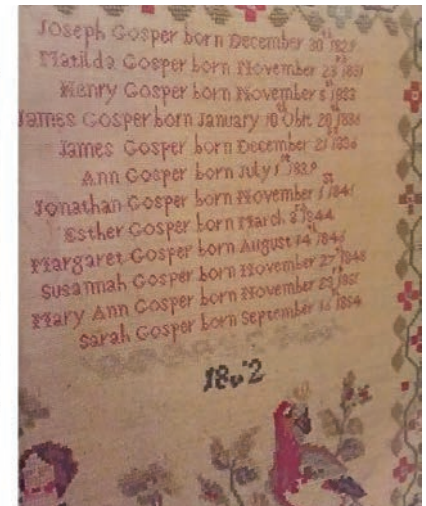 Joseph Gosper born December 30th 1829
Matilda Gosper born November 23rd 1831
Henry Gosper born November 8th 1833
James Gosper born January 10th Obit 20th 1836
James Gosper born December 21st 1836
Ann Gosper born July 1st 1839
Jonathan Gosper born November 1st 1841
Esther Gosper born March 3rd 1844
Margaret Gosper born August 14th 1846
Susannah Gosper born November 27th 1848
Mary Ann Gosper born November 1851
Sarah Gosper born September 1854